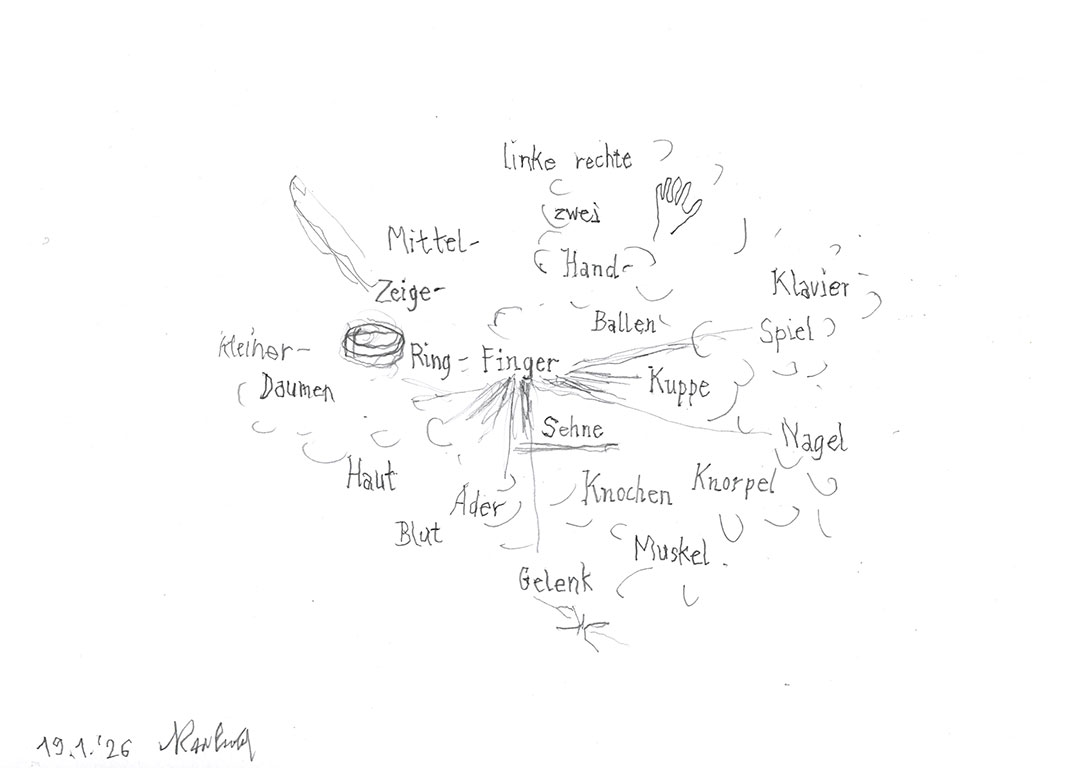 linke rechte
zwei
Mittel-
Hand-
Zeige-
Klavier-
Ballen
Spiel
kleiner-
Ring-Finger
Daumen
Kuppe
Sehne
Nagel
Haut
Knochen
Knorpel
Ader
Blut
Muskel
Gelenk
19.1.'26